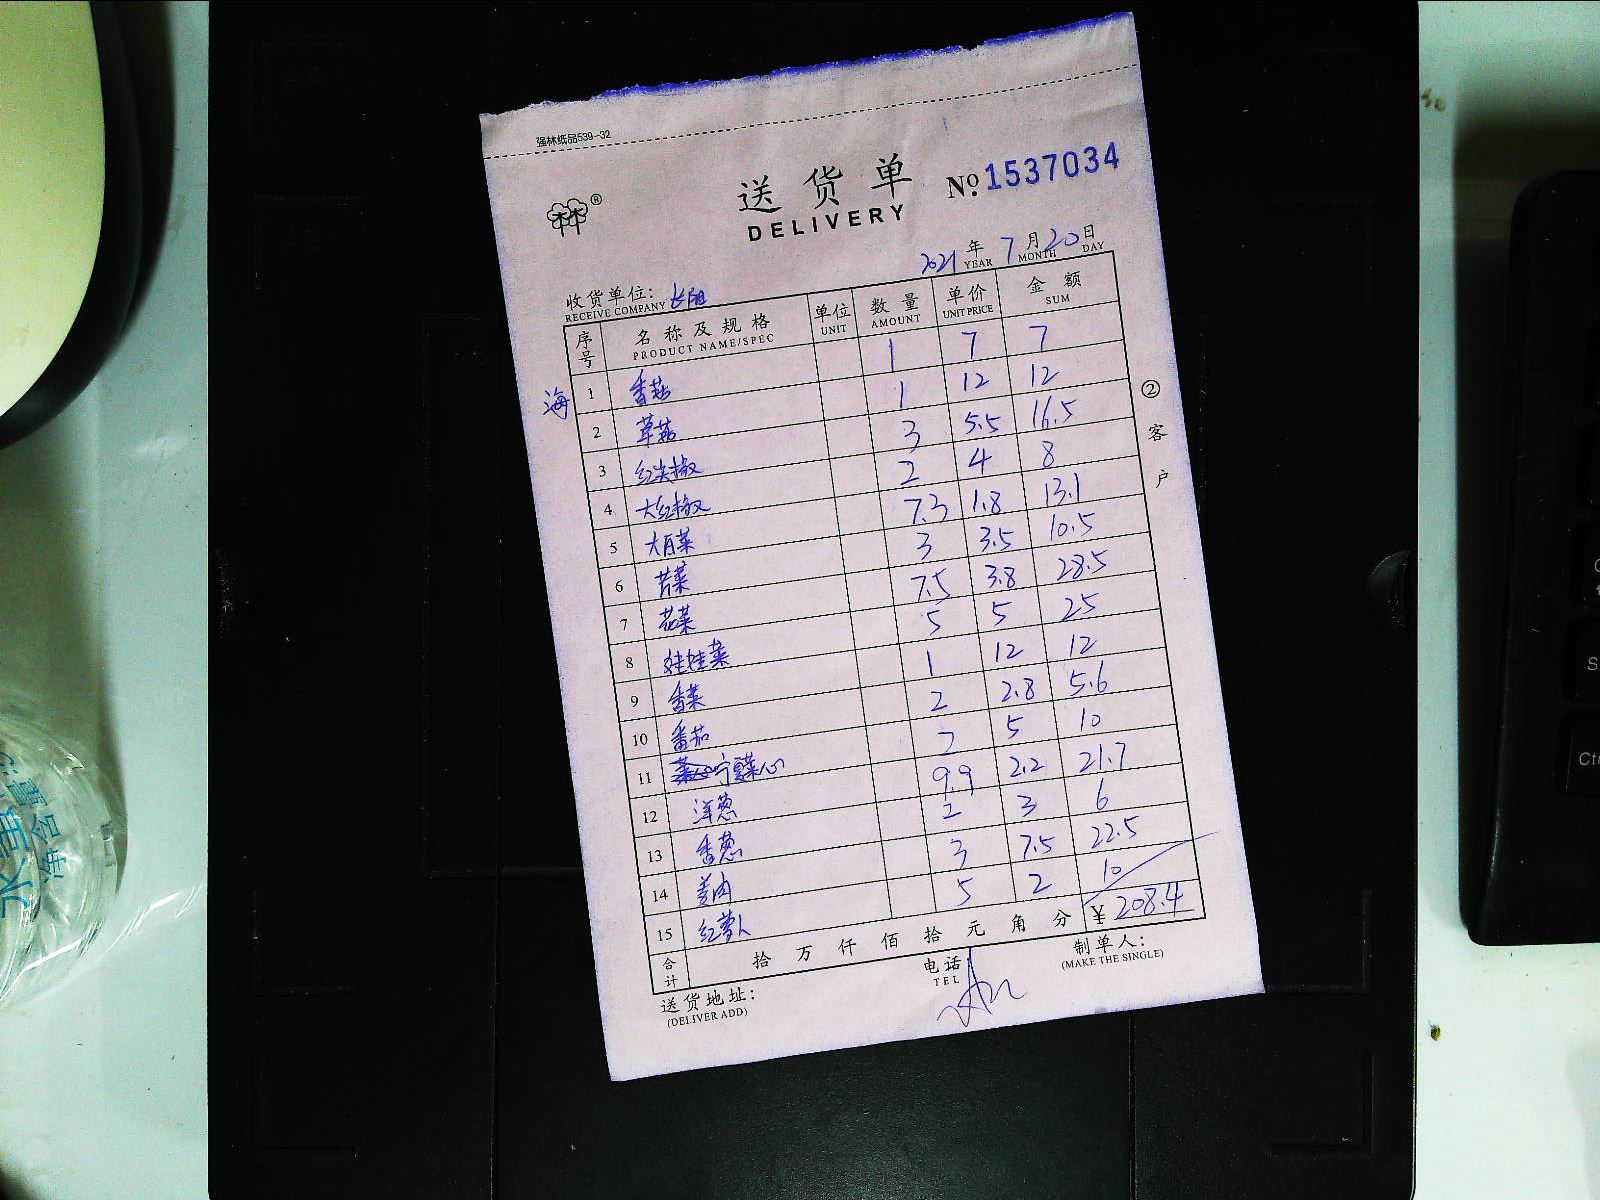 强林纸品539-32
林®
送货单 No. 1537034
DELIVERY
2021 年 7 月 20 日
YEAR MONTH DAY
收货单位: 长阳
RECEIVE COMPANY
序号 名称及规格 单位 数量 单价 金额
PRODUCT NAME/SPEC UNIT AMOUNT UNIT PRICE SUM
海 1 香菇 1 7 7
2 草菇 1 12 12
3 红尖椒 3 5.5 16.5
4 大红椒 2 4 8
5 大白菜 7.3 1.8 13.1
6 芹菜 3 3.5 10.5
7 花菜 7.5 3.8 28.5
8 娃娃菜 5 5 25
9 香菜 1 12 12
10 番茄 2 2.8 5.6
11 宁夏菜心 2 5 10
12 洋葱 9.9 2.2 21.7
13 香葱 2 3 6
14 姜肉 3 7.5 22.5
15 红萝卜 5 2 10
合计 拾万仟佰拾元角分 ¥ 208.4
送货地址: 电话 制单人:
(DELIVER ADD) TEL (MAKE THE SINGLE)
② 客户
水重
净含量
Ctr